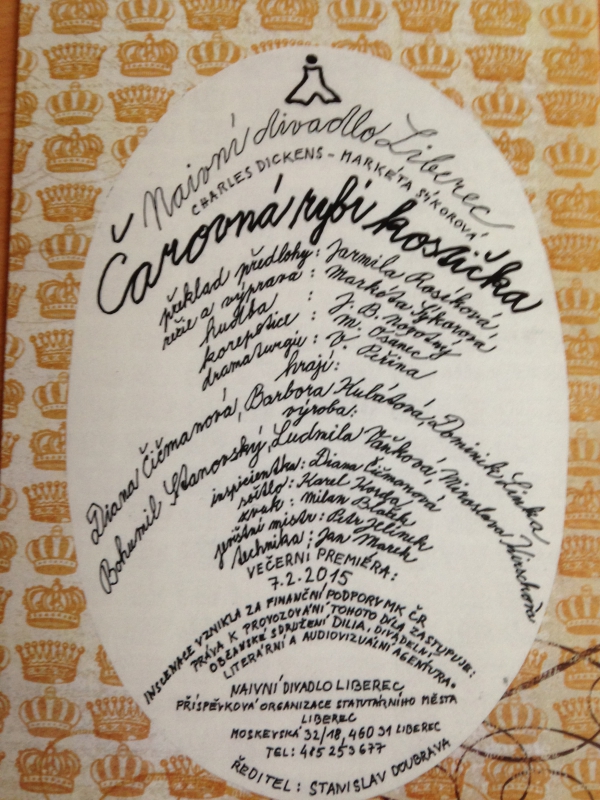 Naivní divadlo Liberec
CHARLES DICKENS - MARKÉTA SÝKOROVÁ
Čarovná rybí kostička
překlad předlohy: Jarmila Rosíková,
režie a výprava: Markéta Sýkorová,
hudba : J. B. Novotný
korepetice : M. Osanec
dramaturgie : V. Peřina
hrají:
Diana Čičmanová, Barbora Kubátová, Dominik Linka
výroba:
Bohumil Stanovský, Ludmila Vaňková, Miroslava Hirschová
inspicientka: Diana Čičmanová
světlo: Karel Korda
zvuk: Milan Blažek
jevištní mistr: Petr Jelínek
technika: Jan Marek
VEČERNÍ PREMIÉRA:
7.2.2015
INSCENACE VZNIKLA ZA FINANČNÍ PODPORY MK ČR
PRÁVA K PROVOZOVÁNÍ TOHOTO DÍLA ZASTUPUJE:
OBČANSKÉ SDRUŽENÍ DILIA, DIVADELNÍ
LITERÁRNÍ A AUDIOVIZUÁLNÍ AGENTURA.
NAIVNÍ DIVADLO LIBEREC,
PŘÍSPĚVKOVÁ ORGANIZACE STATUTÁRNÍHO MĚSTA
LIBEREC
MOSKEVSKÁ 32/18, 460 31 LIBEREC
TEL: 485 253 677
ŘEDITEL: STANISLAV DOUBRAVA